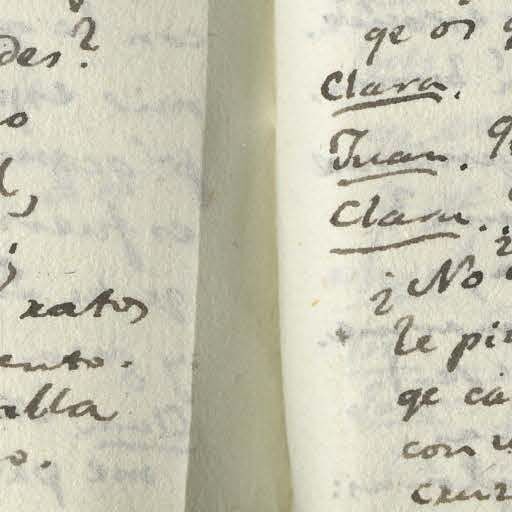 des?
o
l,
;
ratos
ento.
alla
o.
qe os q
Clara.
Juan. q
Clara.
¿No
le pi
qe ca
con u